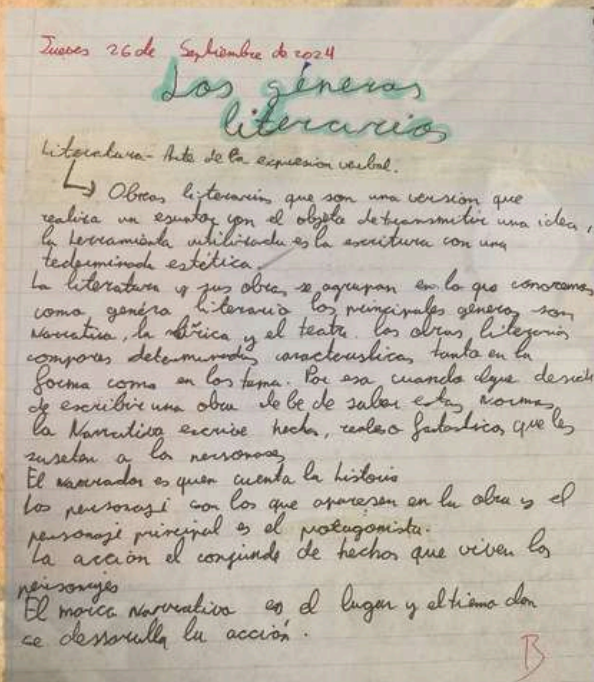 Jueves 26 de Septiembre de 2024
Los géneros
literarios
Literatura - Arte de la expresión verbal.
↳ Obras literarias que son una versión que
realiza un con el objeto de transmitir una idea,
la utilizada es la escritura con una
estética.
La literatura y sus obras se agrupan en lo que conocemos
como genéro literario los principales géneros son
Narrativa, la lírica y el teatro. los obras literarios
compares determinadas caracteristicas tanto en la
forma como en los tema. Por eso cuando
de escribir una obra debe de saber estas Normas
la Narrativa escribe hecho, reales o fantasticos que les
a los personajes
El narrador es quen cuenta la historia
Los personaje son los que aparesen en la obra y el
personaje principal es el protagonista.
La acción el de hechos que viven los
personajes
El marco Narrativo es el lugar y el don
se la acción.
B